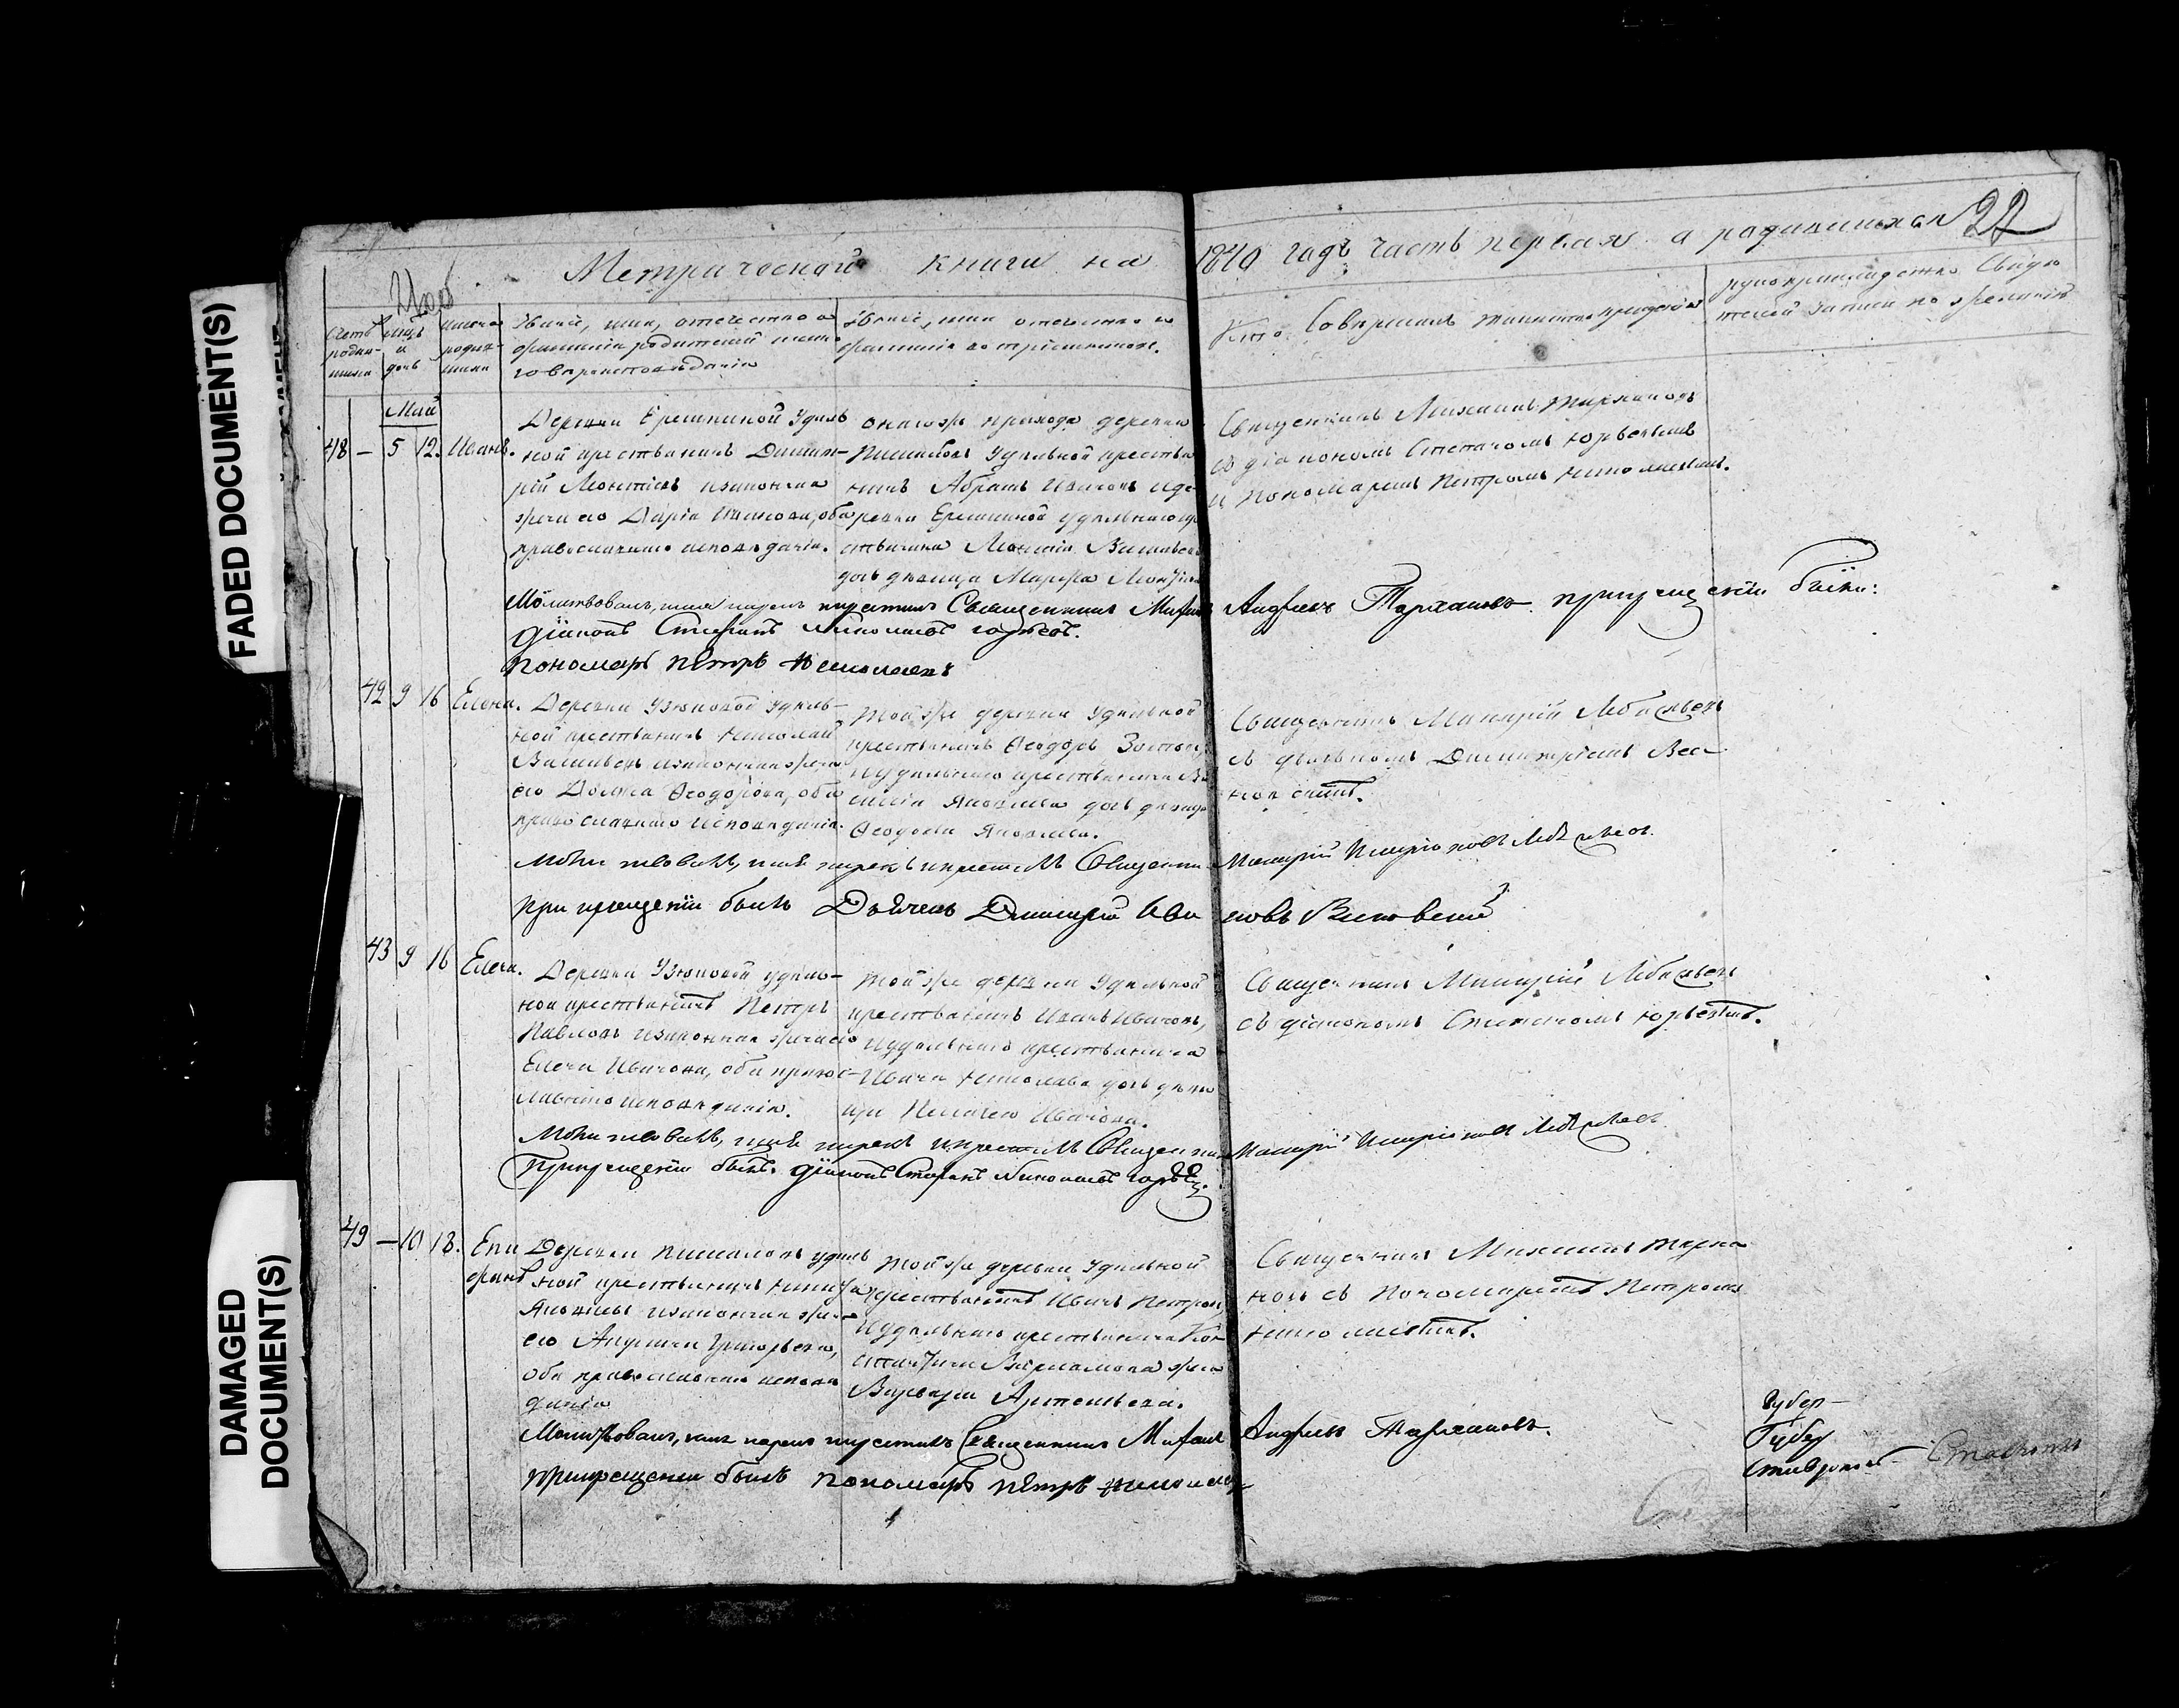 FADED DOCUMENT(S)
DAMAGED
DOCUMENT(S)
Метрической книги на 1840 годъ часть первая о родившихся 22
Счетъ родив-
шихся
мцъ и день
имена родив-
шихся
Званіе, имя, отечество и
фамилія родителей и како-
го вѣроисповѣданія
Званіе, имя отечество и
фамилія воспріемниковъ.
Кто совершалъ таинство крещенія
рукоприкладство свидѣ
телей записи по желанію
Май
48 — 5 12. Иванъ.
Деревни Еремкиной Удѣль
ной крестьянинъ Димит-
рій Леонтіевъ и законная
жена его Дарія Иванова, оба
православнаго исповѣданія.
онагожъ прихода деревни
Удѣльной крестья
нинъ Абрамъ Ивановъ и де-
ревни Еремкиной удѣльнаго кре
стьянина Леонтія Васильева
дочь дѣвица Марфа Леонтіева
Священникъ Михаилъ Тархановъ
съ діакономъ Стефаномъ Юрьевымъ
и пономаремъ Петромъ Николаевымъ.
Молитвовалъ, имя нарекъ и крестилъ Священникъ Михаилъ Андреевъ Тархановъ. при крещеніи были:
Діаконъ Стефанъ Николаевъ Юрьевъ.
пономарь Петръ Николаевъ
42 9 16 Елена.
Деревни Узюковой Удѣль-
ной крестьянинъ Николай
Васильевъ и законная жена
его Домна Ѳеодорова, оба
православнаго исповѣданія.
Той же деревни Удѣльной
крестьянинъ Ѳеодоръ
и удѣльнаго крестьянина Ва
силія Яковлева дочь дѣвица
Ѳеодосія Яковлева.
Священникъ Макарій Лебедевъ
съ дьячкомъ Димитріемъ
Молитвовалъ, имя нарекъ и крестилъ Священникъ Макарій
При крещеніи былъ Дьячекъ Димитрій Ивановъ
43 9 16 Елена.
Деревни Узюковой удѣль-
ной крестьянинъ Петръ
Павловъ и законная жена его
Елена Иванова, оба правос-
лавнаго исповѣданія.
Той же деревни Удѣльной
крестьянинъ Иванъ Ивановъ,
и удѣльнаго крестьянина
Ивана Николаева дочь дѣви
ца Пелагея Иванова.
Священникъ Макарій Лебедевъ
съ діакономъ Стефаномъ Юрьевымъ.
Молитвовалъ, имя нарекъ и крестилъ Священникъ Макарій
При крещеніи былъ. Діаконъ Стефанъ Николаевъ Юрьевъ.
49 — 10 18. Епи
фанъ
Деревни удѣль
ной крестьянинъ Никита
Яковлевъ и законная жена
его Акулина Григорьева,
оба православнаго исповѣ
данія
Той же деревни Удѣльной
крестьянинъ Иванъ Петровъ,
и удѣльнаго крестьянина Кон
стантина Варламова жена
Варвара Артемьева.
Священникъ Михаилъ Тарха
новъ съ Пономаремъ Петромъ
Николаевымъ.
Молитвовалъ, имя нарекъ и крестилъ Священникъ Михаилъ Андреевъ Тархановъ.
При крещеніи былъ пономарь Петръ Николаевъ
Губер-
Губер
Ставропол-